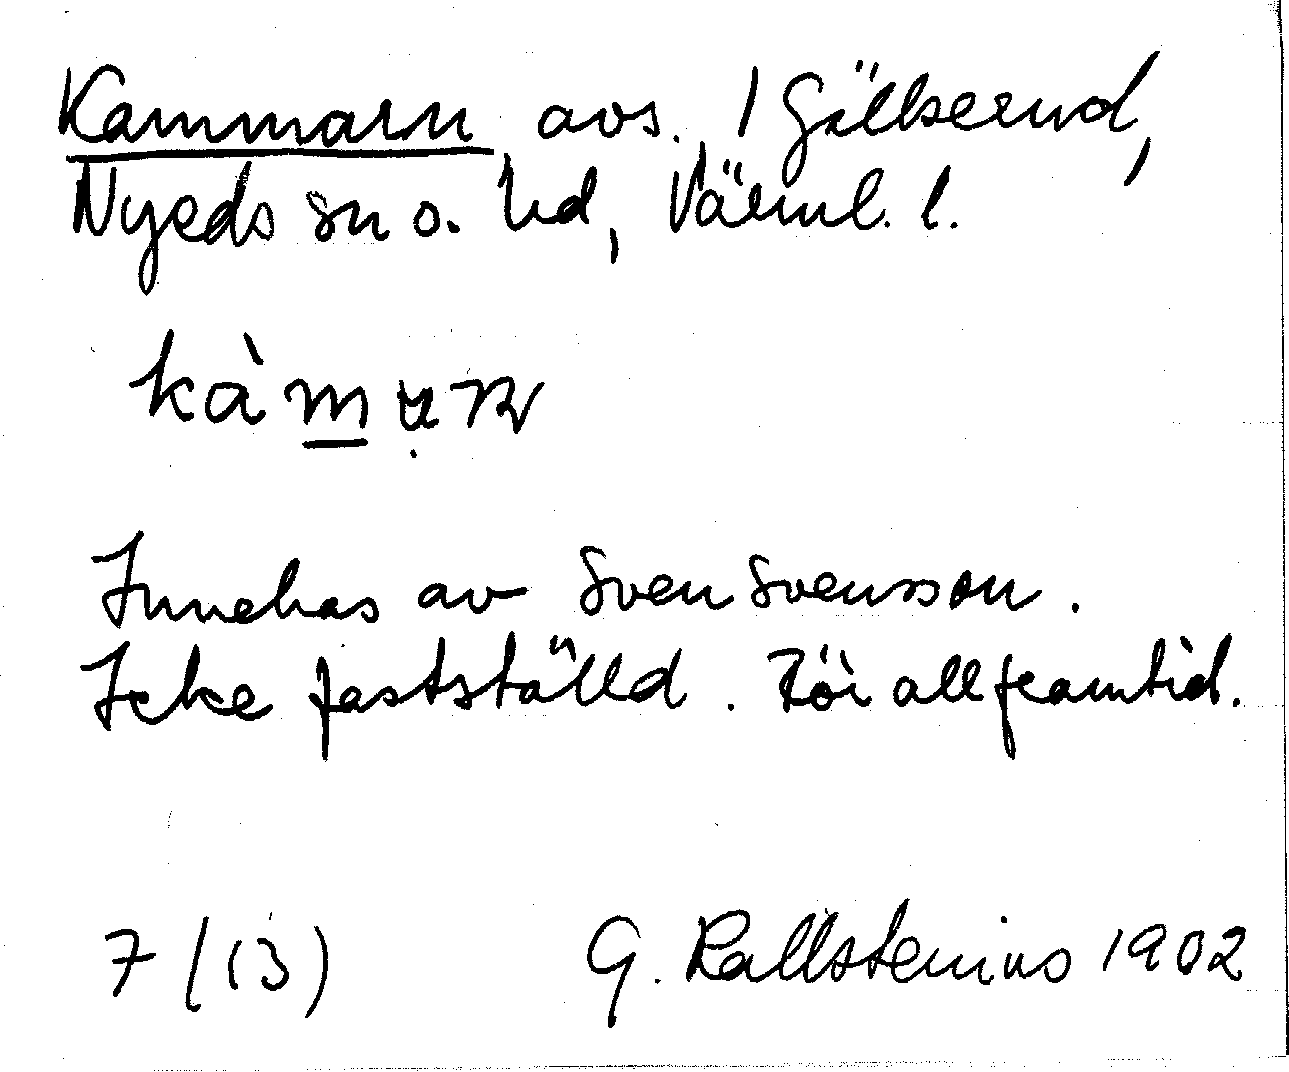 Kammarn avs. 1 Gällserud,
Nyeds sn o. hd, Värml. l.
kàm
Innehas av Sven Svensson.
Icke fastställd. För all framtid.
7/(13) G. Kallstenius 1902